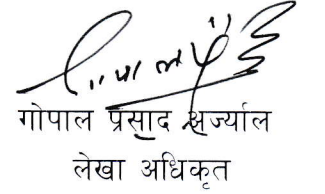 गोपाल प्रसाद अर्ज्याल
लेखा अधिकृत